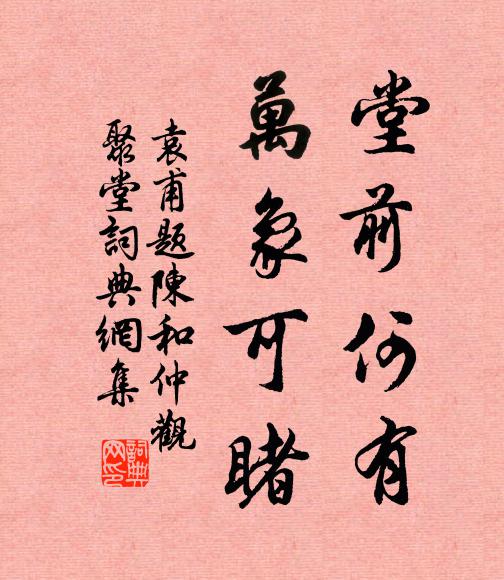 堂前何有
萬象可睹
袁甫題陳和仲觀
聚堂詞典網集
詞典
网印